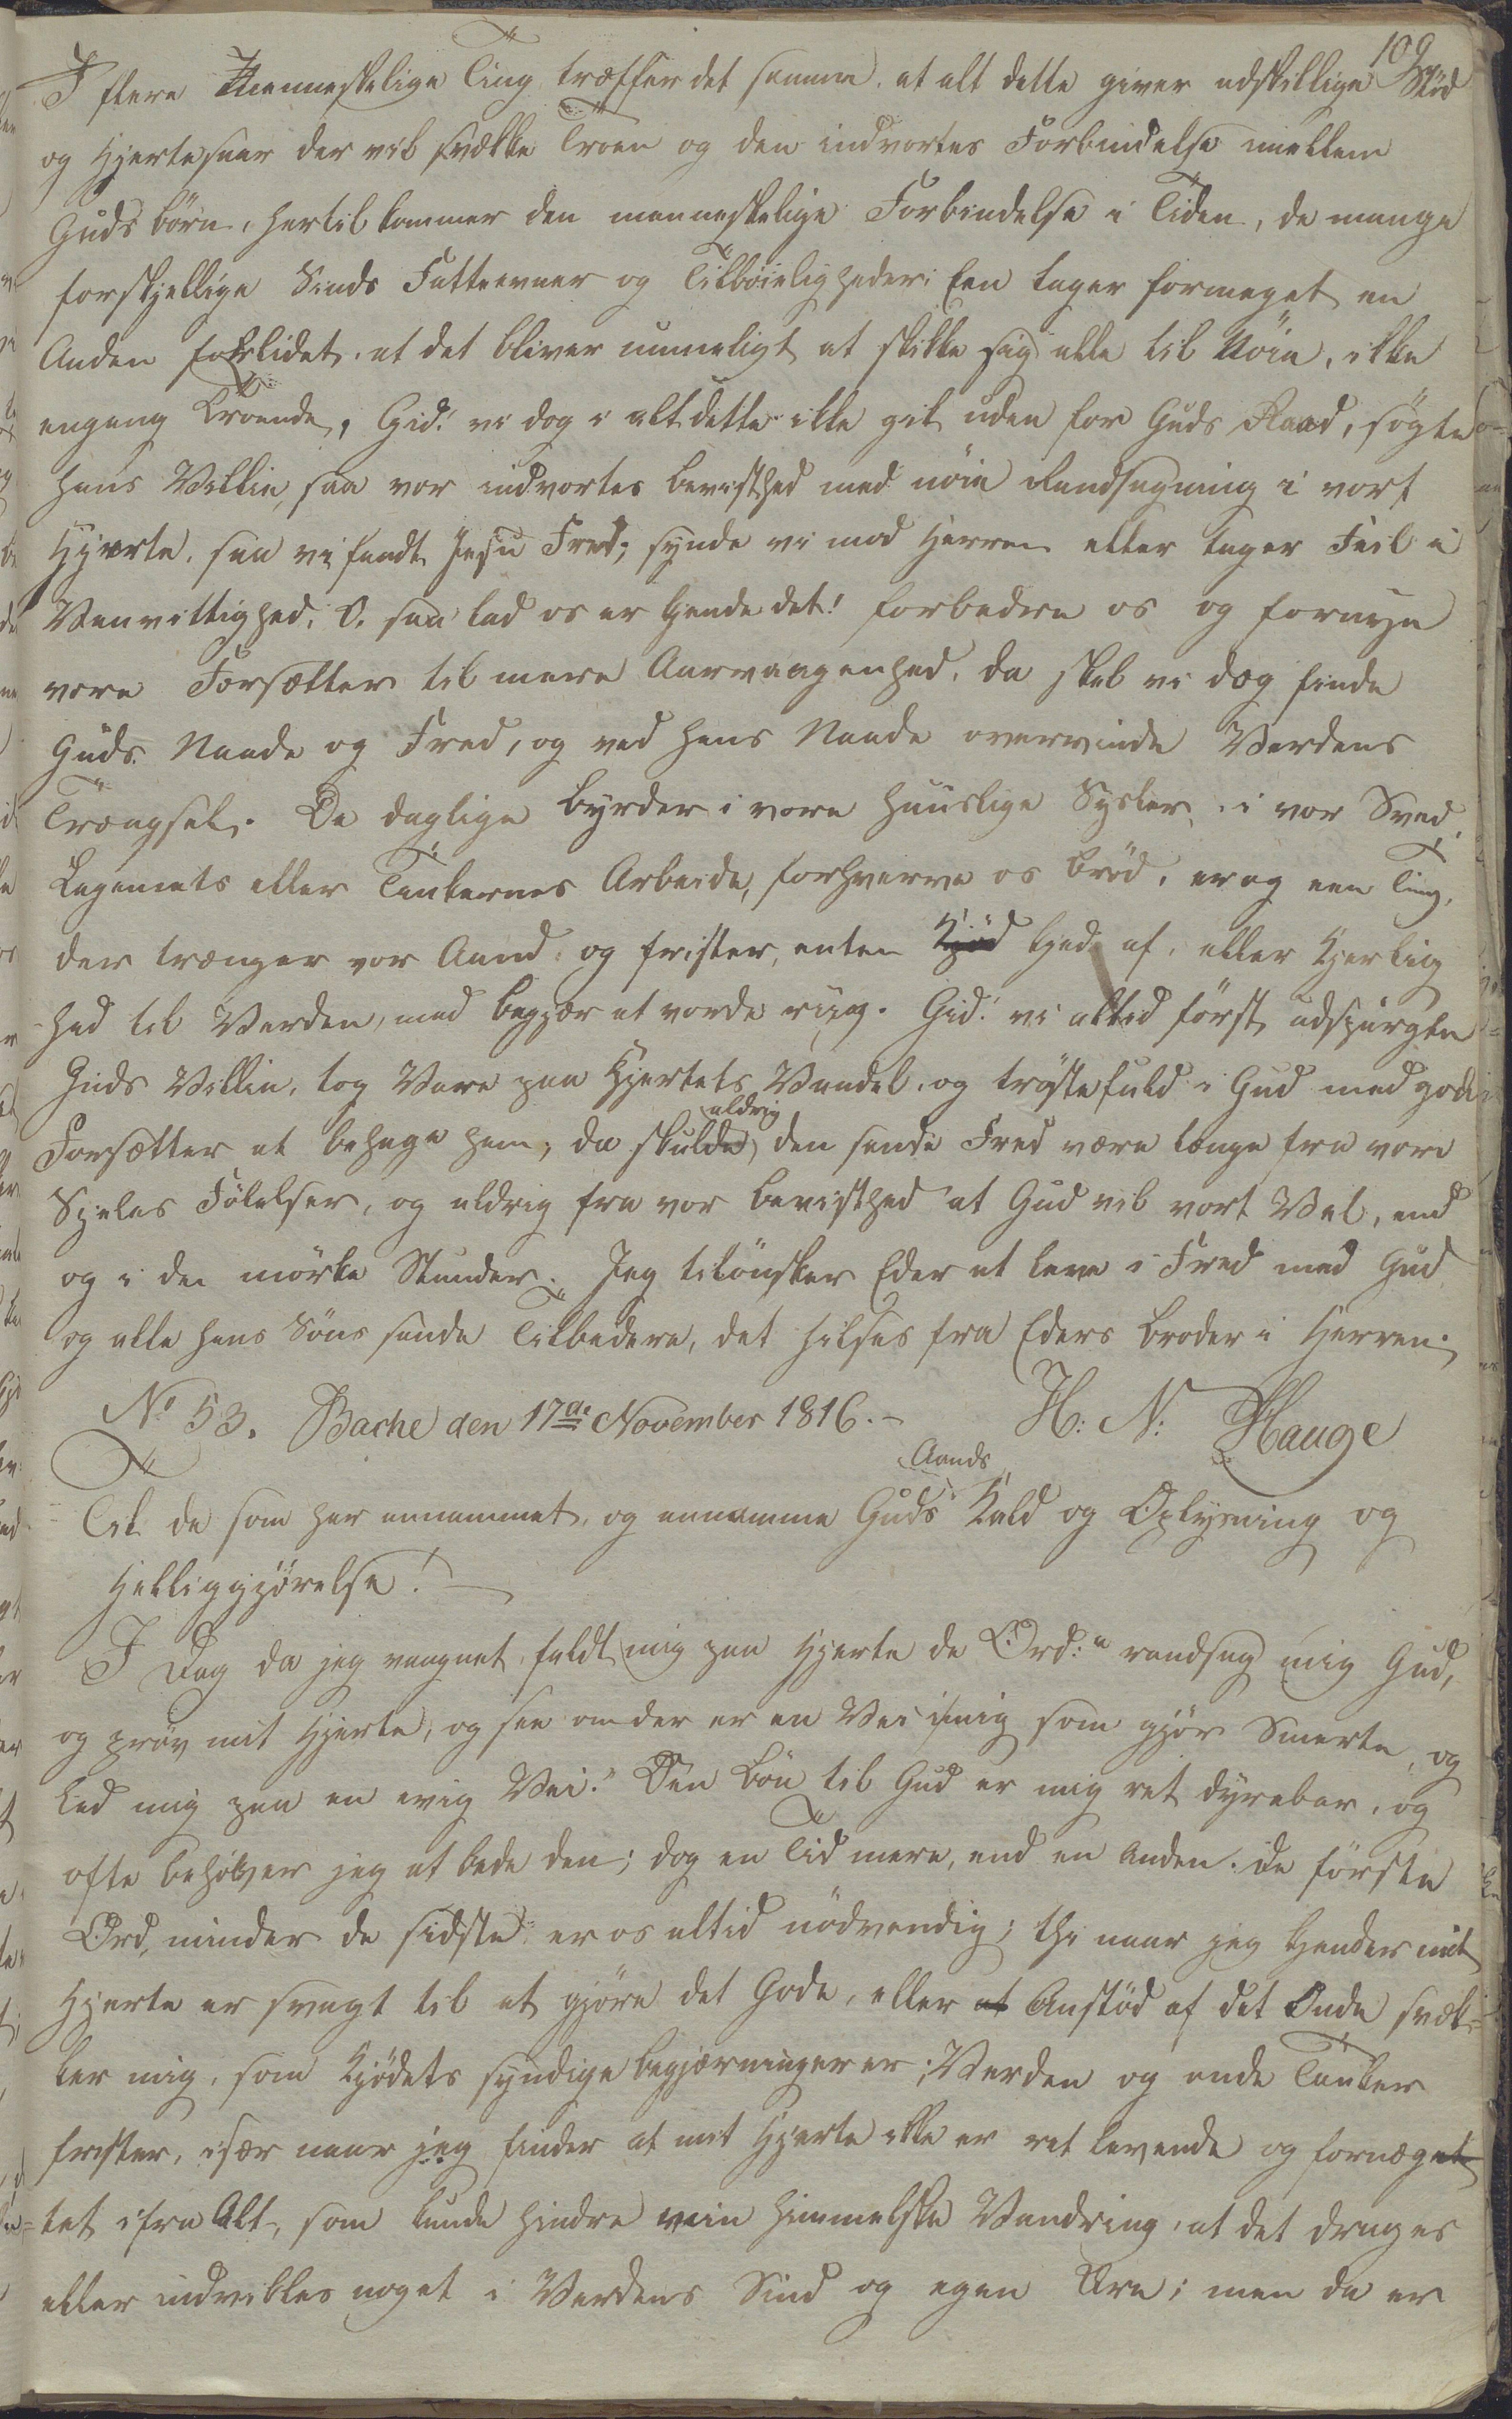 109
I flere Menneskelige Ting træffer det samme, at alt dette giver adskillige Stød
og Hjertesaar der vil svække Troen og den indvortes Forbindelse mellem
Guds børn, hertil kommer den menneskelige Forbindelse i Tiden, de mange
forskjellige Sinds Fatteevner og Tilbøieligheder; Een tager formeget en
Anden forlidet, at det bliver umueligt at skikke sig alle til Nøie, ikke
engang Troende, Gid! vi dog i alt dette ikke gik uden for Guds Raad, søgte
hans Villie, saa vor indvortes bevisthed med nøie Randsagning i vort
Hjerte, saa vi fandt Jesu Fred; synde vi mod Herren eller tager Feil i
Vanvittighed, O, saa lad os er kjende det! forbedre os og fornye
vore Forsætter til mere Aarvaagenhed, da skal vi dog finde
Guds Naade og Fred, og ved hans Naade overvinde Verdens
Trængsel. De daglige byrder i vore huuslige Sysler, i vor Sved,
Legemets eller Tankernes Arbeide, forhverve os brød, er og een Ting,
der trænger vor Aand, og frister, enten Kjød kjed af, eller Kjerlig
hed til Verden, med begjær at vorde riig. Gid! vi altid først udspurgte
Guds Villie, tog Vare paa Hjertets Vandel, og trøstefuld i Gud med gode
Forsætter at behage ham, da skulde aldrig den sande Fred være længe fra vore
Sjeles Følelser, og aldrig fra vor bevisthed at Gud vil vort Vel, end
og i de mørke Stunder. Jeg tilønsker Eder at leve i Fred med Gud
og alle hans Søns sande Tilbedere, det hilses fra Eders broder i Herren.
No 53. Bache den 17de November 1816.- H: N: Hauge
Til de som har annammet, og annamme Guds Aands Kald og Oplysning og
Helliggjørelse! —
I Dag da jeg vaagnet, faldt mig paa Hjerte de Ord: "randsag mig Gud,
og prøv mit Hjerte, og see om der er en Vei i mig som gjør Smerte, og
led mig paa en evig Vei." Den bøn til Gud er mig ret dyrebar, og
ofte behøver jeg at bede den; dog en Tid mere, end en anden. De første
Ord, minder de sidste er os altid nødvendig; thi naar jeg kjender mit
Hjerte er svagt til at gjøre det Gode, eller at Anstød af det Onde svæk-
ker mig, som Kjødets syndige begjæringer er; Verden og onde Tanker
frister, især naar jeg finder at mit Hjerte ikke er ret levende og fornæget
tet ifra Alt, som kunde hindre min himmelske Vandring, at det drages
eller indvikles noget i Verdens Sind og egen Ære; men da er